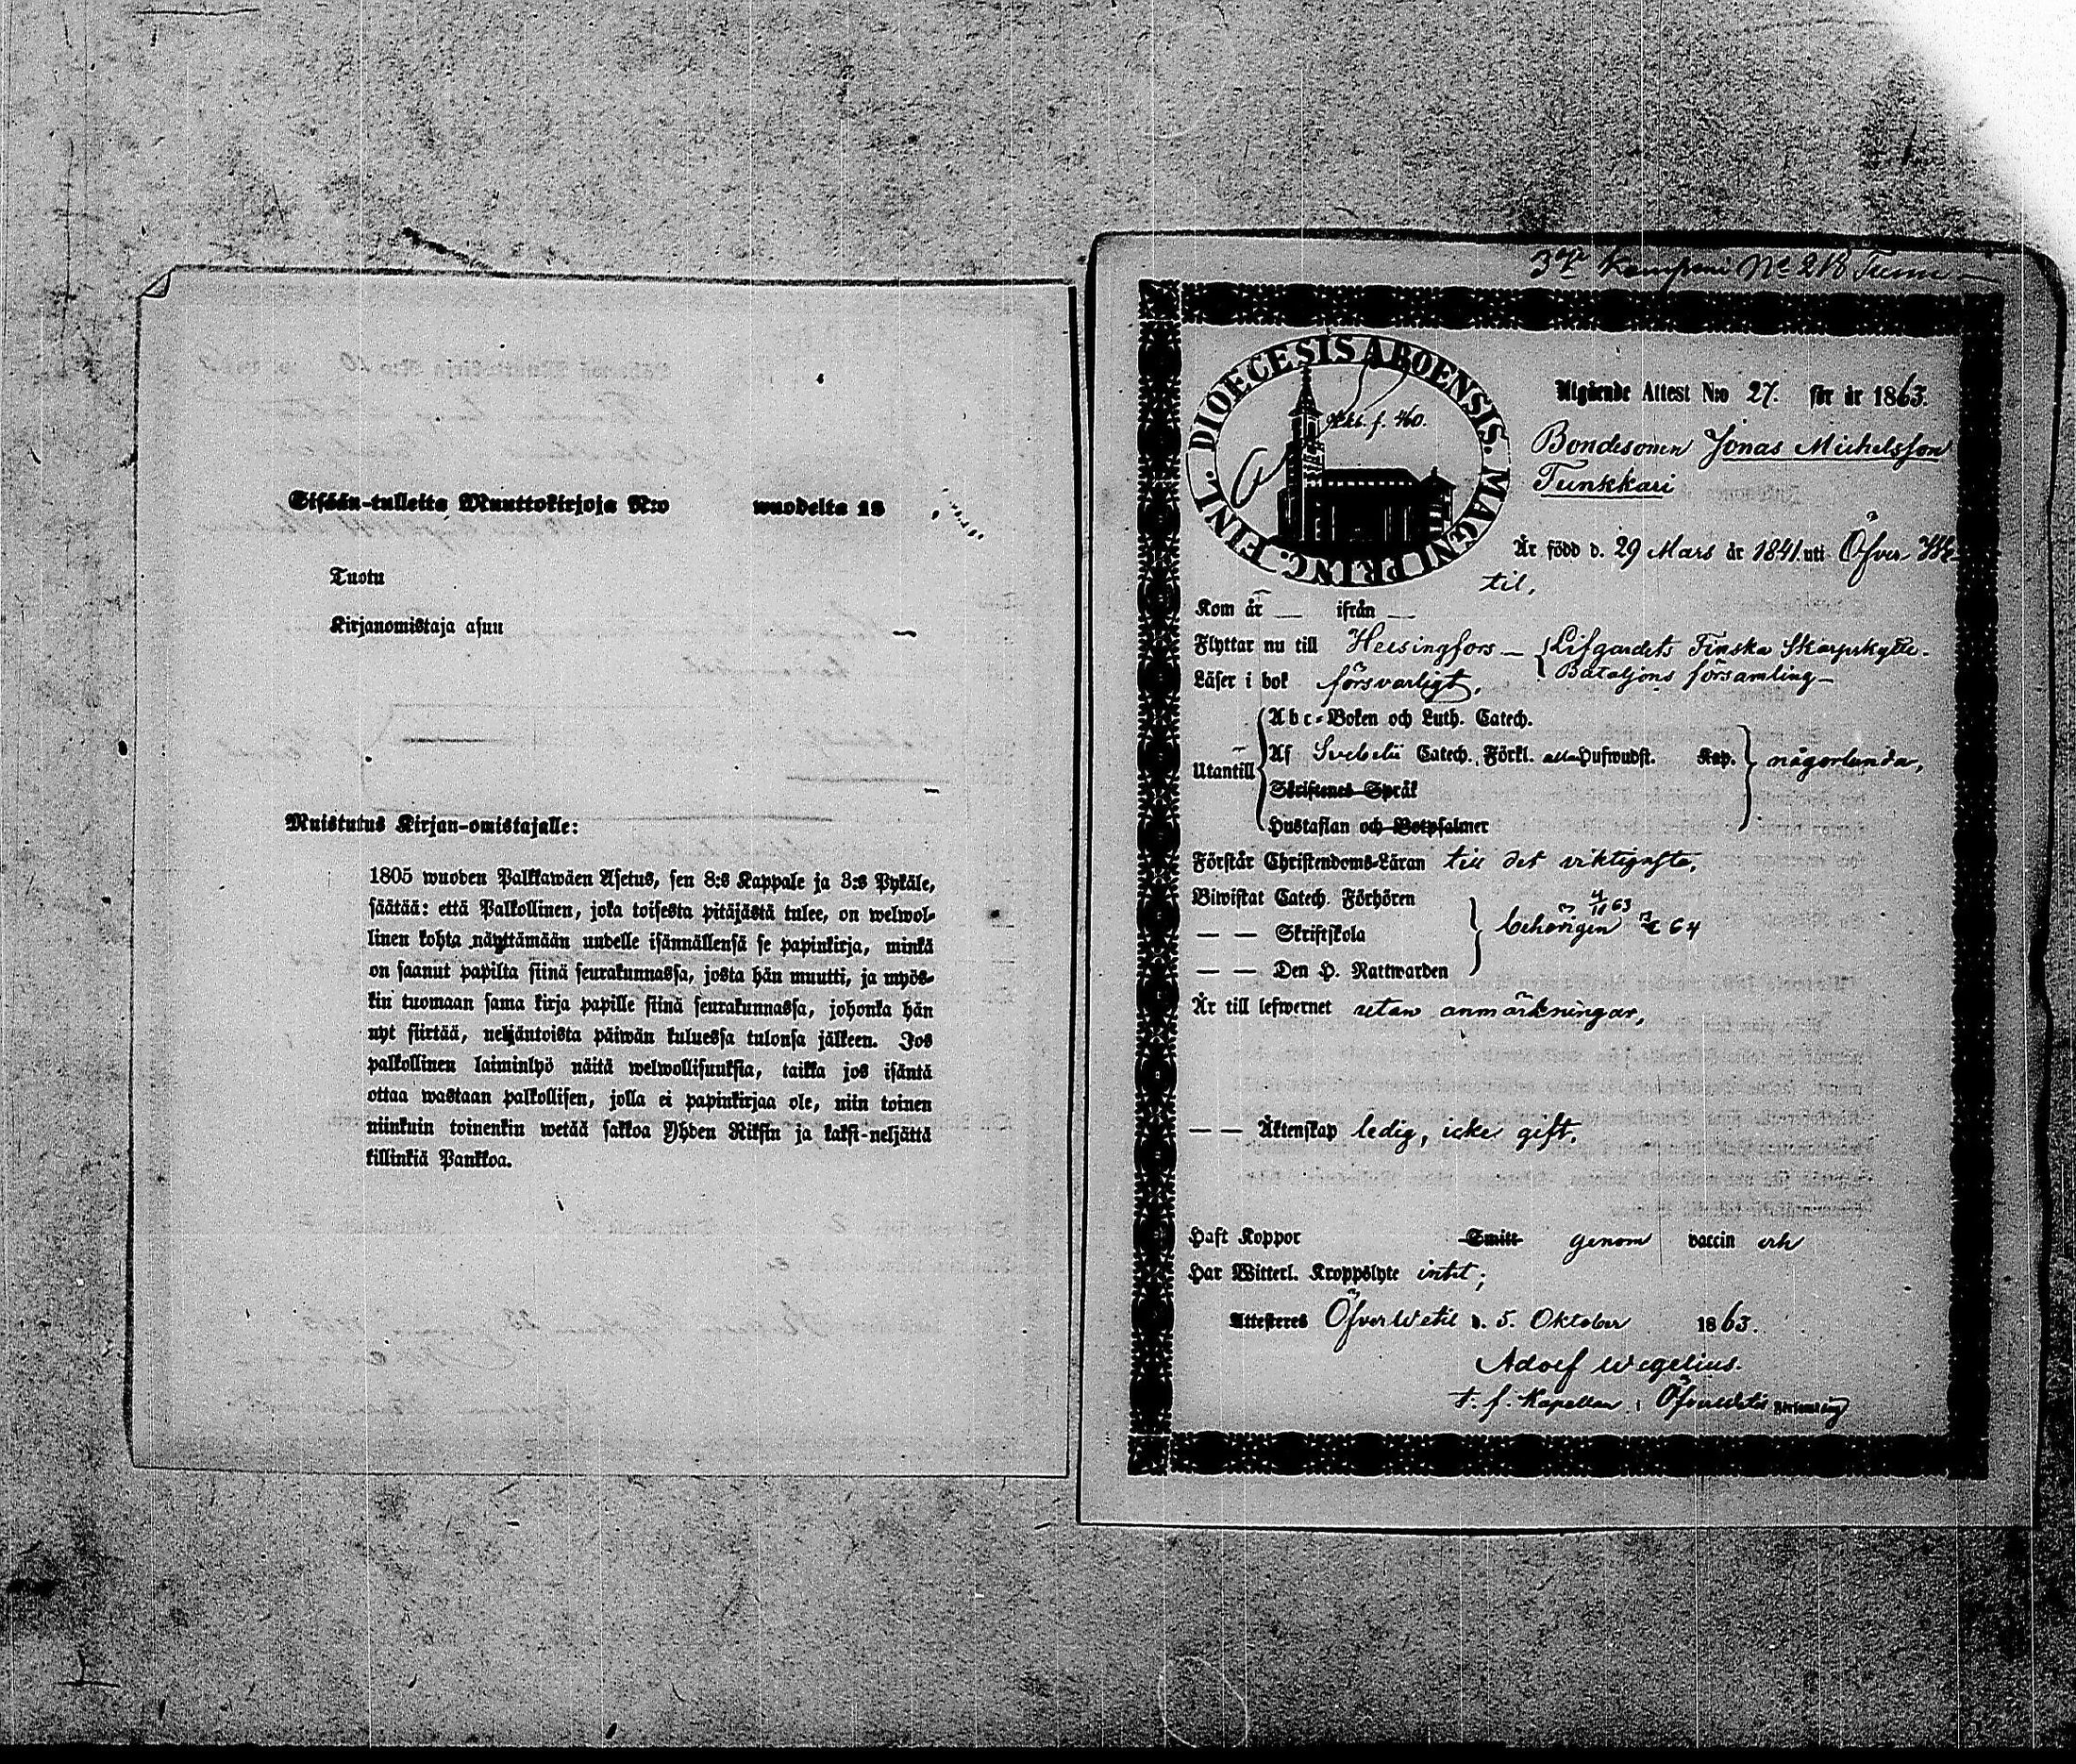 Sisään-tulleita Muuttokirjoja N:o wuodelta 18
Tuotu
Kirjanomistaja asuu
Muistutus Kirjan-omistajalle:
1805 wuoden Palkkawäen Asetus, sen 8:s Kappale ja 3:s Pykäle,
säätää: että Palkollinen, joka toisesta pitäjästä tulee, on welwol-
linen kohta näyttämään uudelle isännällensä se papinkirja, minkä
on saanut papilta siinä seurakunnassa, josta hän muutti, ja myös-
kin tuomaan sama kirja papille siinä seurakunnassa, johonka hän
nyt siirtää, neljäntoista päiwän kuluessa tulonsa jälkeen. Jos
palkollinen laiminlyö näitä welwollisuuksia, taikka jos isäntä
ottaa wastaan palkollisen, jolla ei papinkirjaa ole, niin toinen
niinkuin toinenkin wetää sakkoa Yhden Riksin ja kaksi-neljättä
killinkiä Pankkoa.
3dje Kompani No 218 Tunn
DIOECESIS ABOENSIS. MAGNI PRINC. FINL.
f. 460.
Utgående Attest N:o 27. för år 1863.
Bondesonen Jonas Michelsson
Tunkkari
Är född d. 29 Mars år 1841. uti Öfver-We-
til,
Kom år — ifrån —
Flyttar nu till Helsingfors — Lifgardets Finska Skarpskytte-
Bataljons församling —
Läser i bok försvarligt,
Utantill
Abc-Boken och Luth. Catech.
Af Svebelii Catech. Förkl. alla Hufwudst. Kap. någorlunda,
Skriftenes Språk
Hustaflan och Botpsalmer
Förstår Christendoms-Läran till det viktigaste,
Biwistat Catech. Förhören
— — Skriftskola behörigen 4/11 63 64
— — Den H. Nattwarden
Är till lefwernet utan anmärkningar,
— — Äktenskap ledig, icke gift.
Haft Koppor Smitt genom vaccin
Har Witterl. Kroppslyte intet;
Attesteres ÖfverWetil d. 5. Oktober 1863.
Adolf Wegelius.
t. f. Kapellan i Öfverwetil Församling